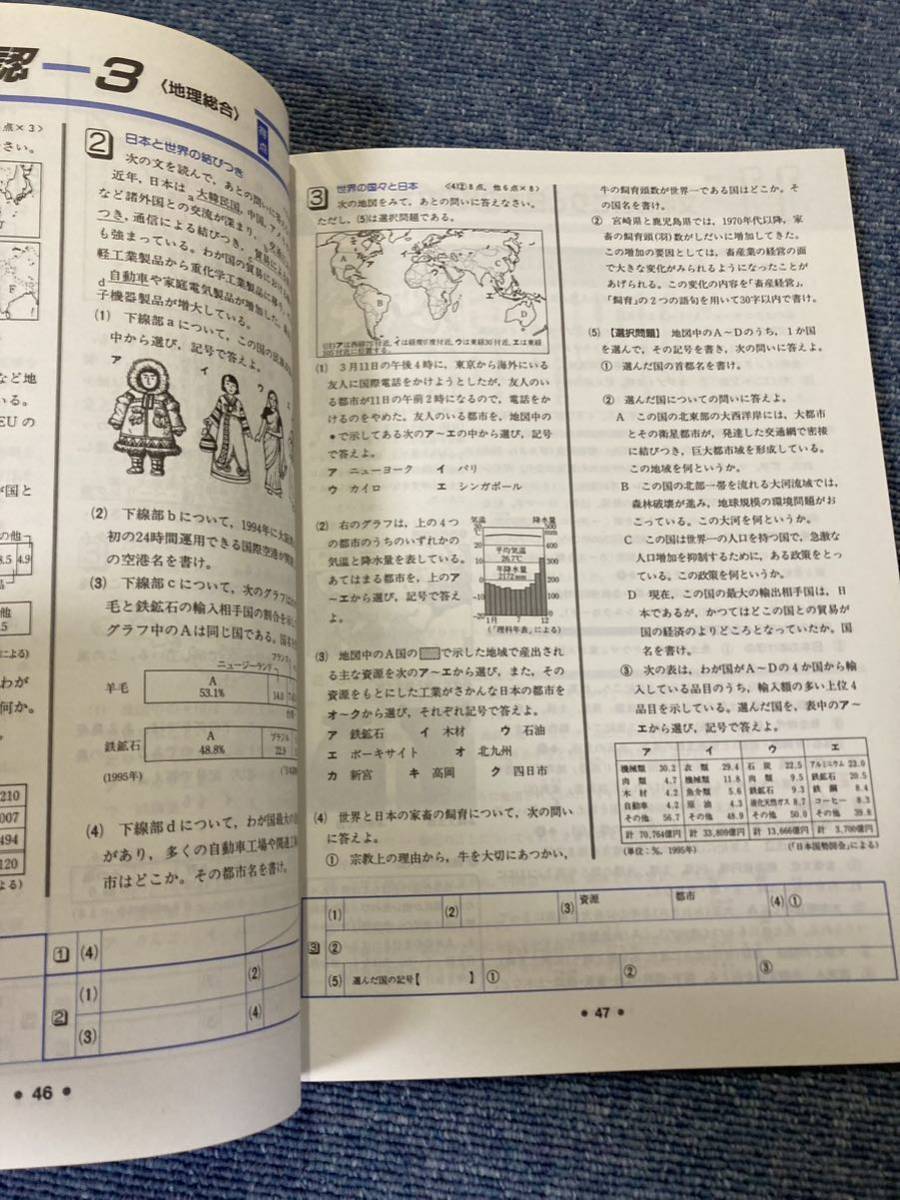 認—3
〈地理総合〉
得点
点×3〉
さい。
F
など地
いる。
EUの
が国と
の他
8.5 4.9
他
.5
による)
わが
何か。
210
007
494
120
よる)
2 日本と世界の結びつき
次の文を読んで，あとの問いに答え
近年，日本は大韓民国，中国，アメリカ
など諸外国との交流が深まり，
つき，通信による結びつき，貿易による
も強まっている。わが国の貿易における
軽工業製品から重化学工業製品に移り，
自動車や家庭電気製品が増加した。
子機器製品が増大している。
a
b
c
d
(1) 下線部aについて，この国の民族衣
中から選び，記号で答えよ。
ア
イ
ウ
(2) 下線部bについて，1994年に大阪
初の24時間運用できる国際空港が開
の空港名を書け。
(3) 下線部cについて，次のグラフは
毛と鉄鉱石の輸入相手国の割合を示し
グラフ中のAは同じ国である。国名を
フランス
ニュージーランド
羊毛
A
53.1%
14.0
鉄鉱石
A
48.8%
ブラジル
22.9
(1995年)
(4) 下線部dについて，わが国最大の
があり，多くの自動車工場や関連工
市はどこか。その都市名を書け。
1 (4)
2 (1) (2)
(3) (4)
• 46 •
3 世界の国々と日本 〈(4)②8点，他6点×8〉
次の地図をみて，あとの問いに答えなさい。
ただし，(5)は選択問題である。
A
B
C
D
ア
イ
ウ
エ
(注)アは西経75付近，イは経度0度付近，ウは東経30付近，エは東経
105付近に位置する。
(1) 3月11日の午後4時に，東京から海外にいる
友人に国際電話をかけようとしたが，友人のい
る都市が11日の午前2時になるので，電話をか
けるのをやめた。友人のいる都市を，地図中の
●で示してある次のア～エの中から選び，記号
で答えよ。
ア ニューヨーク イ パリ
ウ カイロ エ シンガポール
(2) 右のグラフは，上の4つ
の都市のうちのいずれかの
気温と降水量を表している。
あてはまる都市を，上のア
～エから選び，記号で答え
よ。
気温
降水量
℃
mm
30
20
10
0
-10
-20
500
400
300
200
100
0
平均気温
26.7℃
年降水量
2172mm
1月 7 12
(「理科年表」による)
(3) 地図中のA国の で示した地域で産出され
る主な資源を次のア～エから選び，また，その
資源をもとにした工業がさかんな日本の都市を
オ～クから選び，それぞれ記号で答えよ。
ア 鉄鉱石 イ 木材 ウ 石油
エ ボーキサイト オ 北九州
カ 新宮 キ 高岡 ク 四日市
(4) 世界と日本の家畜の飼育について，次の問い
に答えよ。
① 宗教上の理由から，牛を大切にあつかい，
牛の飼育頭数が世界一である国はどこか。そ
の国名を書け。
② 宮崎県と鹿児島県では，1970年代以降，家
畜の飼育頭(羽)数がしだいに増加してきた。
この増加の要因としては，畜産業の経営の面
で大きな変化がみられるようになったことが
あげられる。この変化の内容を「畜産経営」，
「飼育」の2つの語句を用いて30字以内で書け。
(5) 【選択問題】 地図中のA～Dのうち，1か国
を選んで，その記号を書き，次の問いに答えよ。
① 選んだ国の首都名を書け。
② 選んだ国についての問いに答えよ。
A この国の北東部の大西洋岸には，大都市
とその衛星都市が，発達した交通網で密接
に結びつき，巨大都市域を形成している。
この地域を何というか。
B この国の北部一帯を流れる大河流域では，
森林破壊が進み，地球規模の環境問題がお
こっている。この大河を何というか。
C この国は世界一の人口を持つ国で，急激な
人口増加を抑制するために，ある政策をとっ
ている。この政策を何というか。
D 現在，この国の最大の輸出相手国は，日
本であるが，かつてはどこの国との貿易が
国の経済のよりどころとなっていたか。国
名を書け。
③ 次の表は，わが国がA～Dの4か国から輸
入している品目のうち，輸入額の多い上位4
品目を示している。選んだ国を，表中のア～
エから選び，記号で答えよ。
ア イ ウ エ
機械類 30.2 衣類 29.4 石炭 22.5 アルミニウム 23.0
肉類 4.7 機械類 11.8 肉類 9.5 鉄鉱石 20.5
木材 4.2 魚介類 5.6 鉄鉱石 9.3 鉄鋼 8.4
自動車 4.2 原油 4.3 液化天然ガス 8.7 コーヒー 8.3
その他 56.7 その他 48.9 その他 50.0 その他 39.8
計 70,764億円 計 33,809億円 計 13,666億円 計 3,700億円
(単位：%，1995年) (「日本国勢図会」による)
3 (1) (2) (3) 資源 都市 (4) ①
②
(5) 選んだ国の記号【 】 ① ② ③
• 47 •